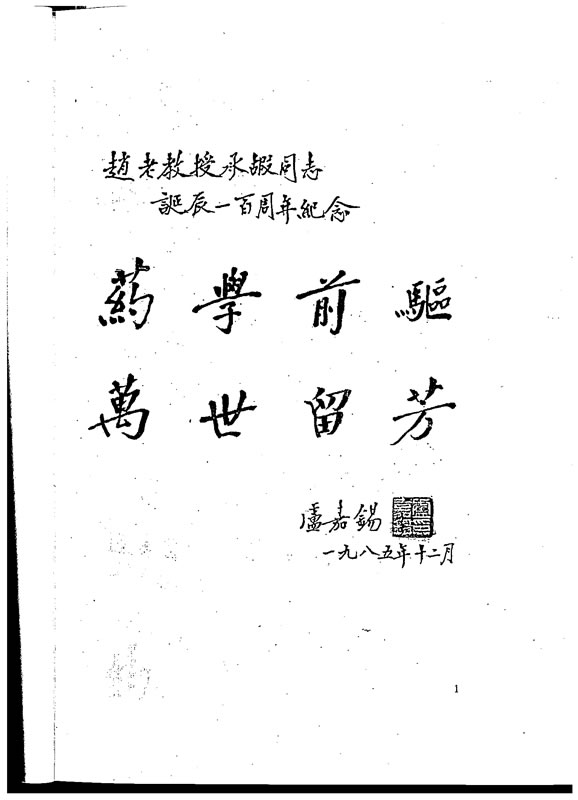 趙老教授承嘏同志
誕辰一百周年紀念
葯學前驅
萬世留芳
盧嘉錫
一九八五年十二月
1